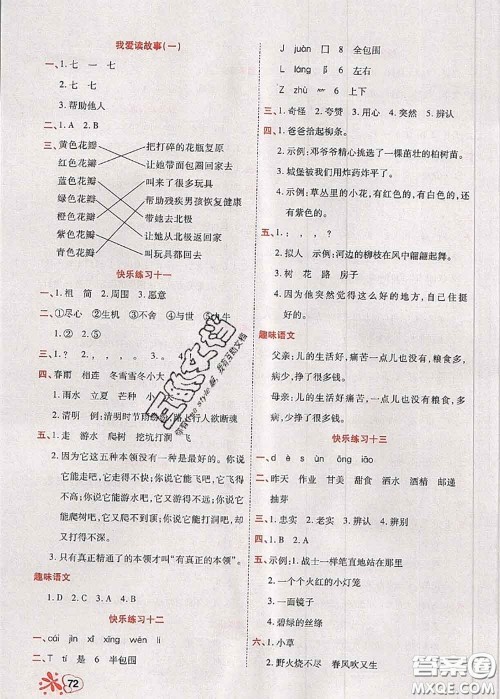 我爱读故事(一)
一、1. 七 一 七
2. 七 七
3. 帮助他人
二、1. A 2. B
三、黄色花瓣 把打碎的花瓶复原
红色花瓣 让她带面包圈回家去
蓝色花瓣 叫来了很多玩具
绿色花瓣 帮助残疾男孩恢复健康
橙色花瓣 带她去北极
紫色花瓣 让她从北极回家去
青色花瓣 叫玩具都回去
快乐练习十一
一、1. 祖 简 2. 周围 3. 愿意
二、①尽心 ②生机 ③不舍 ④变 ⑤与世
1. ② 2. ⑤
三、1. ? 2. , , , 。 3. , 。
四、春雨 相连 冬雪雪冬小大
1. 雨水 立夏 芒种
2. 清明 例:清明时节雨纷纷,路上行人欲断魂
五、1. 走 游水 爬树 挖坑打洞 飞
2. 因为它这五种本领没有一种是最好的。你说
它能走吧,它走得不快;你说它能飞吧,它飞
得不高;你说它能游水吧,它又游得不远;你
说它能爬树吧,它又爬不到顶;你说它能打洞
吧,又打得不深。
3. 只有真正精通了的本领才叫“有真正的本领”。
趣味语文
1. D 2. C 3. A 4. B
快乐练习十二
一、cái jìn xī xíng wén lì
二、T tí 是 6 半包围
72
J juàn 囗 8 全包围
L lǎng 月 6 左右
Z zhù 𥫗 6 上下
三、1. 奇怪 2. 夸赞 3. 用心 4. 突然 5. 辨认
四、1. 爸爸拾起柳条。
2. 示例:邓爷爷精心挑选了一棵茁壮的柏树苗。
3. 城堡被我们用炸药炸平了。
4. 示例:草丛里的小花,有红色的,有黄色的,
还有紫色的。
五、1. , , , 。
2. 拟人 示例:河边的柳枝在风中翩翩起舞。
3. 树 花 路 房子
4. 因为他突然觉得这么好的地方,自己也挺
好的。
趣味语文
父亲:儿的生活好,痛苦一点儿也没有,粮食多,
病少,挣了很多钱。
母亲:儿的生活好痛苦,一点儿也没有粮食,多
病,少挣了很多钱。
快乐练习十三
一、d è s ùn ōng iāo
二、昨天 作业 甘美 甜食 酒精 洒脱 邮递
抽芽
三、1. 忠实 2. 老实 3. 辨认 4. 辨别
四、1. C 2. A 3. B
五、示例:1. 战士一样笔直地站在那里
2. 一个个火红的小灯笼
3. 一面镜子
4. 碧绿的丝绦
六、1. 小草
2. 野火烧不尽 春风吹又生
答案圈
MXQE.COM